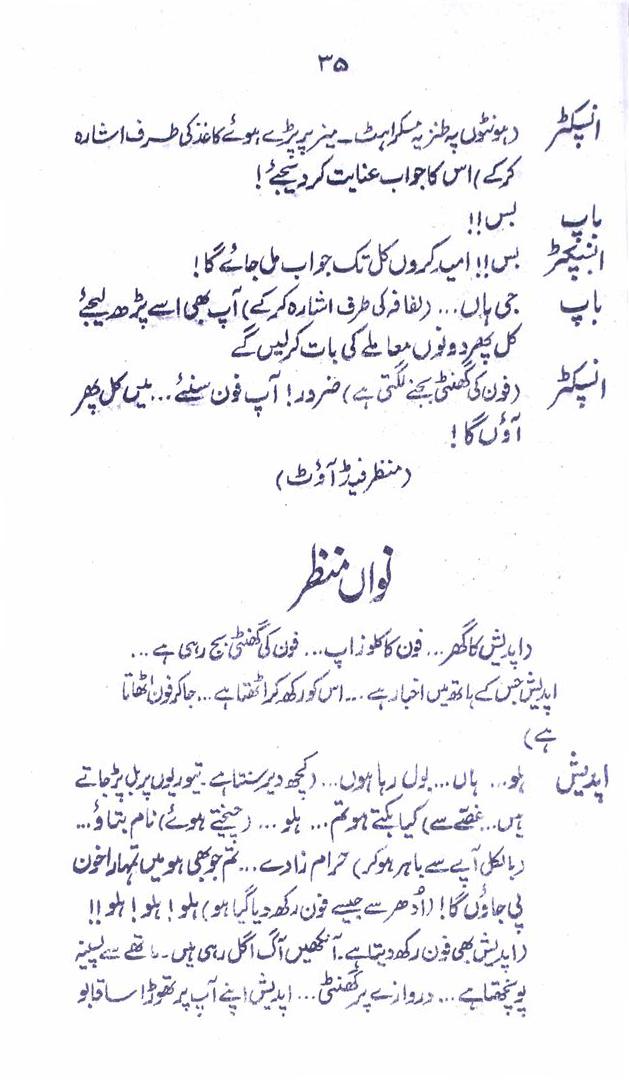 ۳۵
انسپکٹر (ہونٹوں پہ طنزیہ مسکراہٹ ـ میز پر پڑے ہوئے کاغذ کی طرف اشارہ
کرکے) اس کا جواب عنایت کر دیجئے!
باپ بس!!
انسپکٹر بس!! امید کروں کل تک جواب مل جائے گا!
باپ جی ہاں... (لفافہ کی طرف اشارہ کرکے) آپ بھی اسے پڑھ لیجئے
کل پھر دونوں معاملے کی بات کرلیں گے
انسپکٹر (فون کی گھنٹی بجنے لگتی ہے) ضرور! آپ فون سنئے... میں کل پھر
آؤں گا!
(منظر فیڈ آؤٹ)
نواں منظر
(اپدیش کا گھر... فون کا کلوز اپ... فون کی گھنٹی بج رہی ہے...
اپدیش جس کے ہاتھ میں اخبار ہے... اس کو رکھ کر اٹھتا ہے... جاکر فون اٹھاتا
ہے)
اپدیش ہلو... ہاں... بول رہا ہوں... (کچھ دیر سنتا ہے۔ تیوریوں پر بل پڑ جاتے
ہیں... غصّے سے) کیا بکتے ہو تم... ہلو... (چیختے ہوئے) نام بتاؤ...
(بالکل آپے سے باہر ہو کر) حرام زادے... تم جو بھی ہو میں تمہارا خون
پی جاؤں گا! (اُدھر سے جیسے فون رکھ دیا گیا ہو) ہلو! ہلو! ہلو!!
(اپدیش بھی فون رکھ دیتا ہے۔ آنکھیں آگ اگل رہی ہیں۔ ماتھے سے پسینہ
پونچھتا ہے... دروازے پر گھنٹی... اپدیش اپنے آپ پر تھوڑا سا قابو